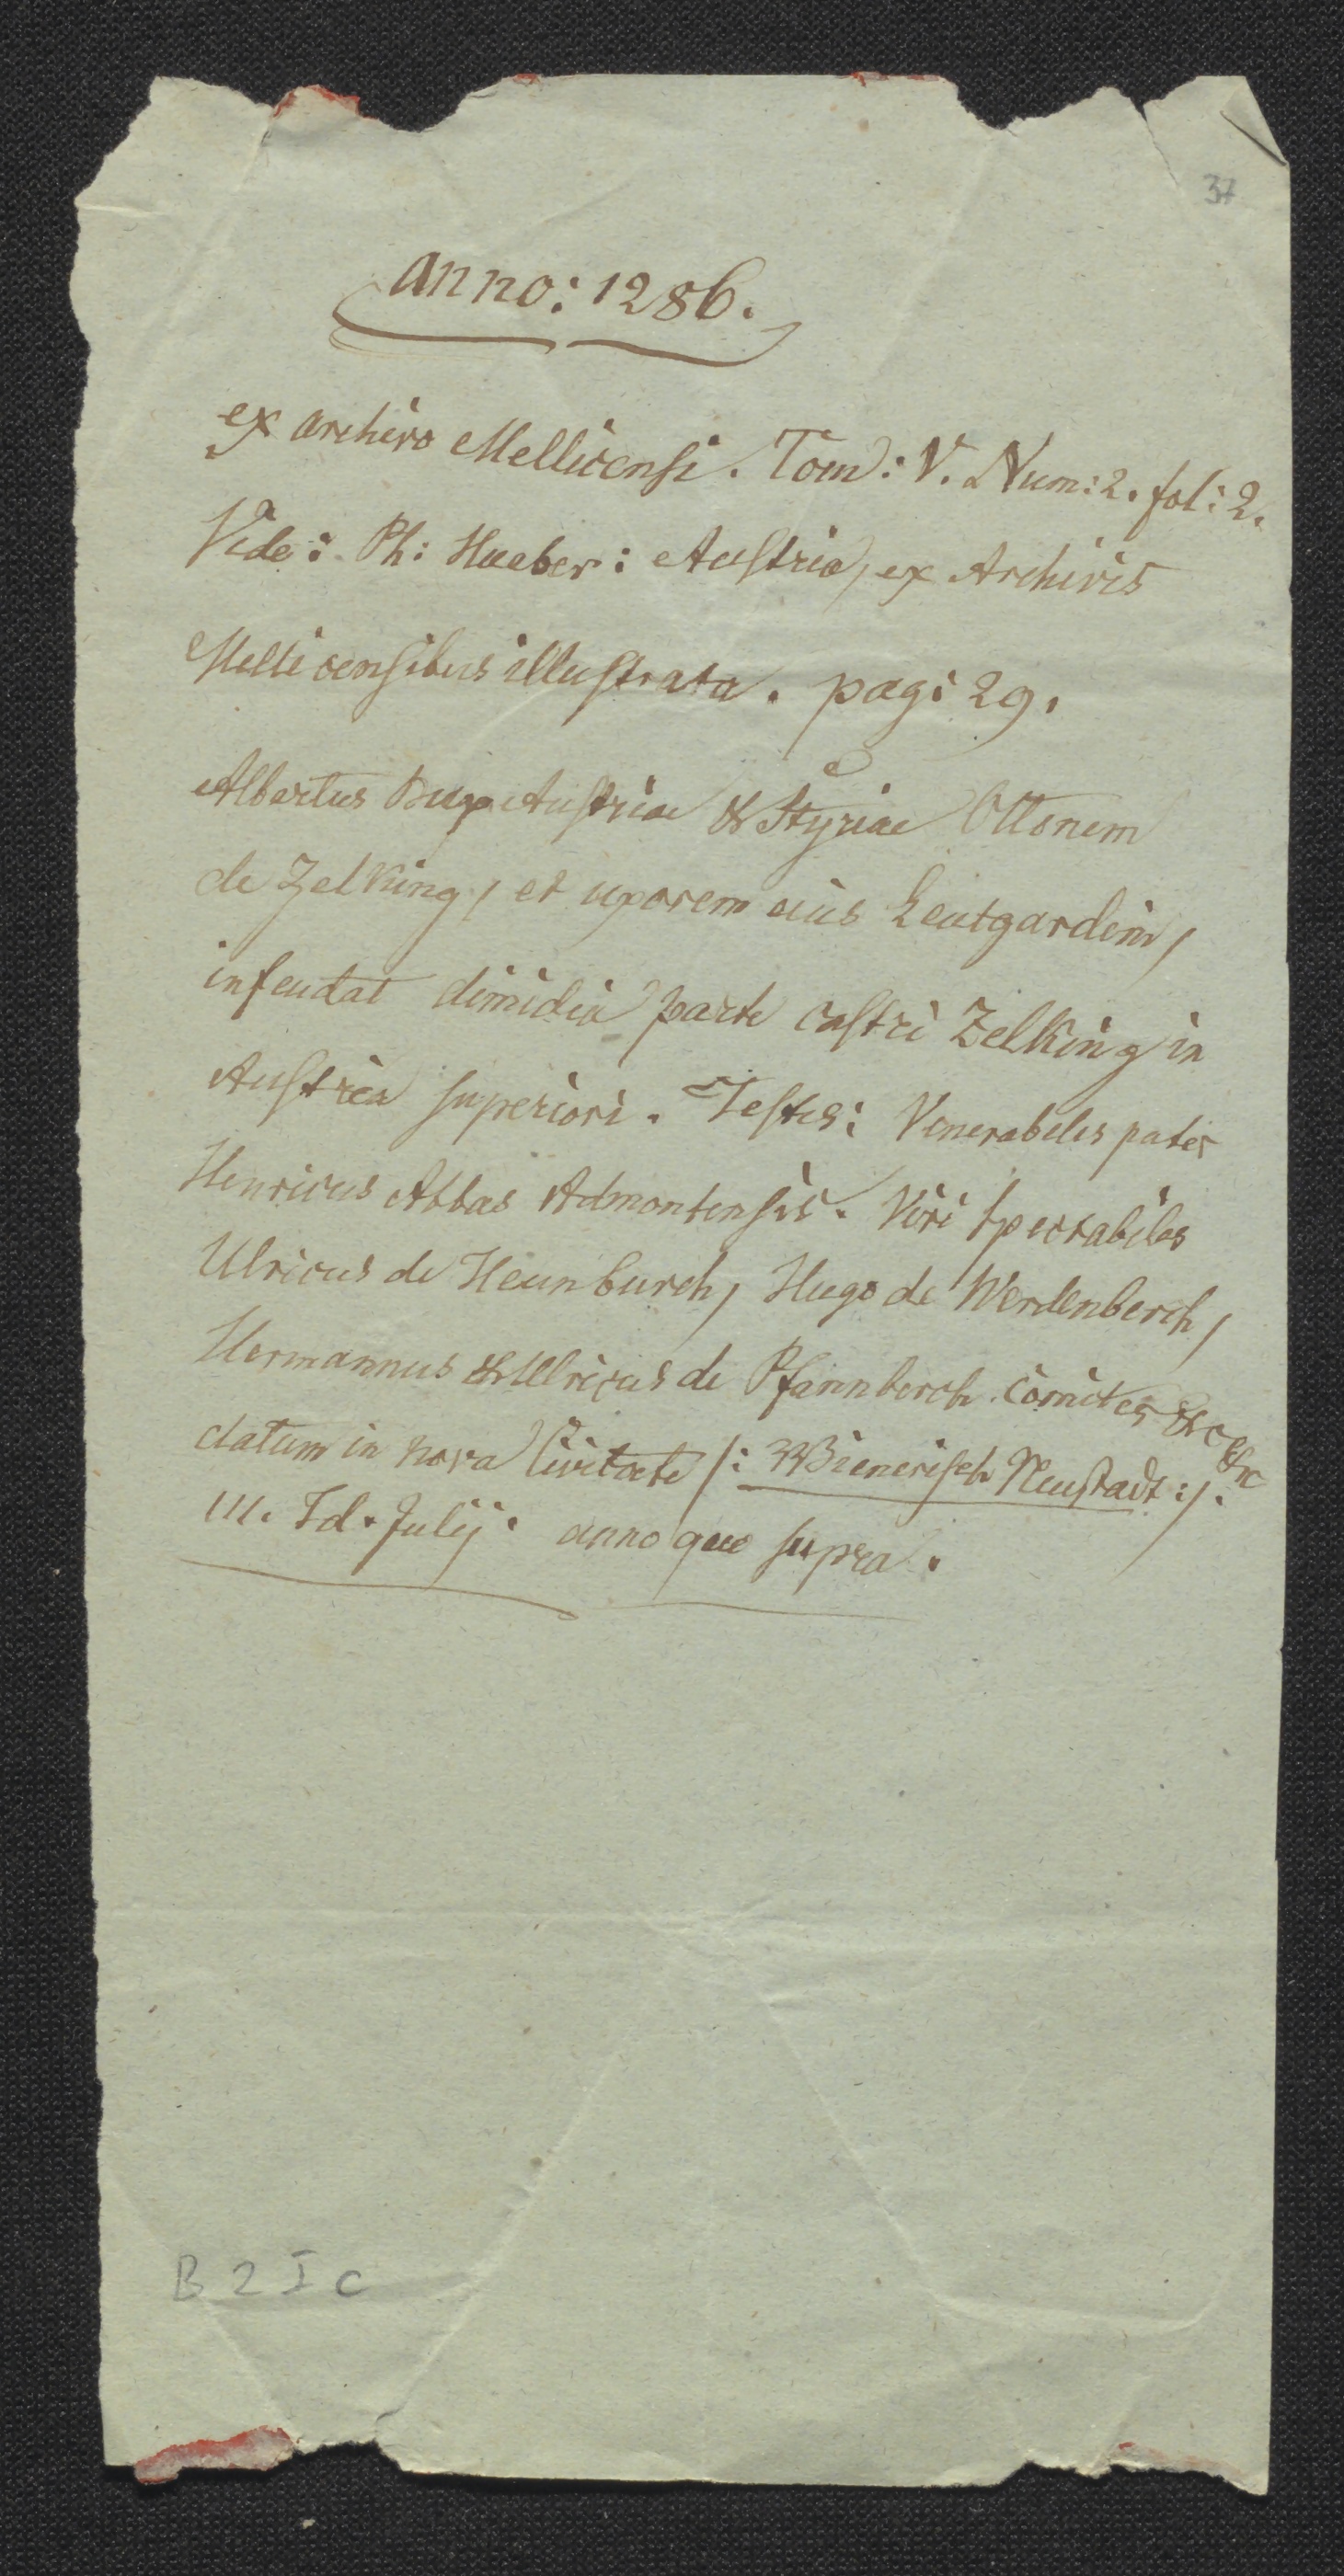 37
anno: 1286.
ex archivo Mellicensi. Tom: V. Num: 2. fol: 2.
Vide: Ph: Hueber: Austria, ex Archivis
Mellicensibus illustrata. pag: 29.
Albertus Dux Austriae & Styriae Ottonem
de Zelking, et uxorem eius Leutgardim,
infeudat dimidia parte castri Zelking in
Austria superiori. Testes: Venerabilis pater
Henricus Abbas Admontensis. Viri spectabiles
Ulricus de Heunburch, Hugo de Werdenberch,
Hermannus & Ulricus de Pfannberch. Comites &c &c
datum in nova Civitate /: Wienerisch Neustadt :/.
III. Id. Julij. anno que supra.
B 2 I c